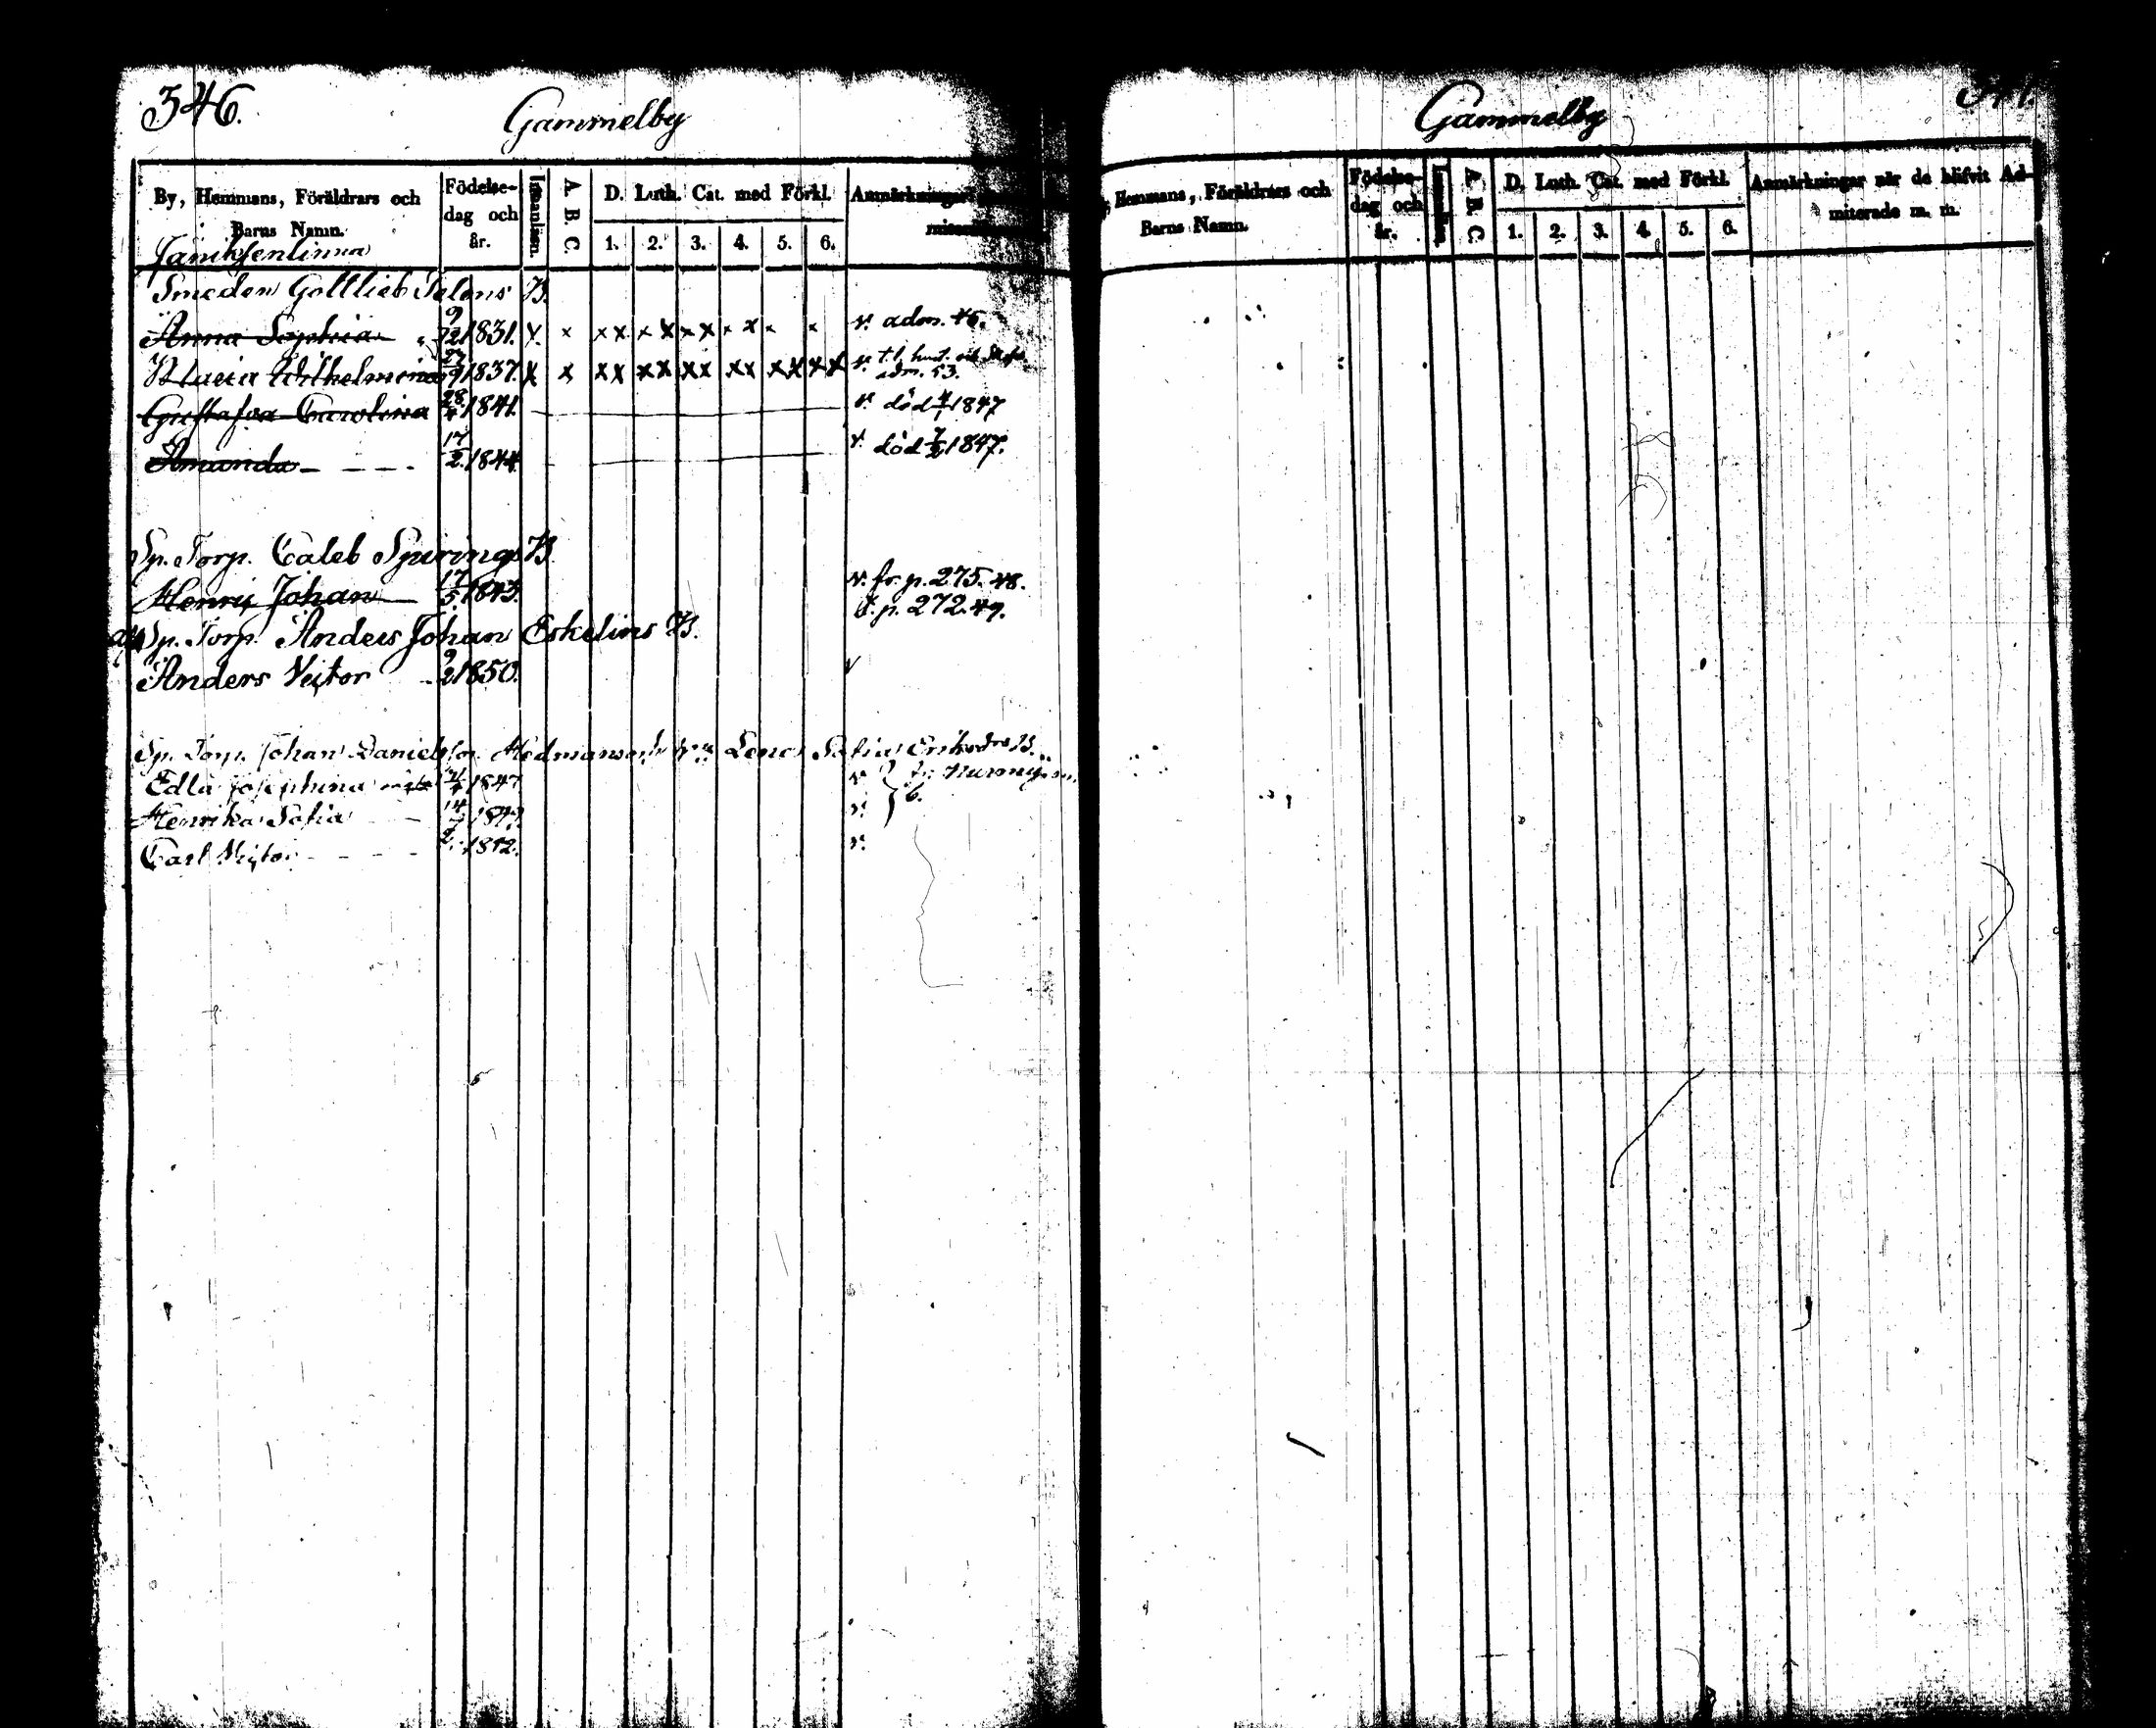 346.
Gammelby
By, Hemmans, Föräldrars och Barns Namn.
Födelse-dag och år.
Innanläsn.
A. B. C.
D. Luth. Cat. med Förkl.
1. 2. 3. 4. 5. 6.
Anmärkningar
Smeden Gottlieb Selens B.
Anna Sophia 9/12 1831. x x x x x x x x x x x x v. adm. 46.
Maria Wilhelmina 27/9 1837. x x x x x x x x x x x x x x v.
adm. 53.
Gustafva Carolina 28/4 1841. v. död 4/1 1847
Amanda 17/2 1844. v. död 7/2 1847.
Sp. Torp. Caleb Spurings B.
Henric Johan 17/5 1843. v. fr. p. 275. 48.
t. p. 272. 49.
Sp. Torp. Anders Johan Eskelins B.
Anders Victor 9/2 1850. v
Sp. Torp. Johan Danielsson Hedmans och Lena Sofia B.
Edla Josephina 1847 v.
Henrika Sofia 14 v.
Carl Victor v.
Gammelby
Hemmans, Föräldrars och Barns Namn.
Födelse-dag och år.
A. B. C.
D. Luth. Cat. med Förkl.
1. 2. 3. 4. 5. 6.
Anmärkningar när de blifvit Ad-
miterade m. m.